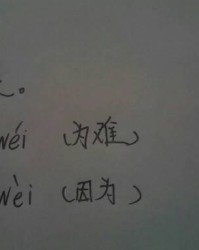 。
wéi （为难）
wèi （因为）